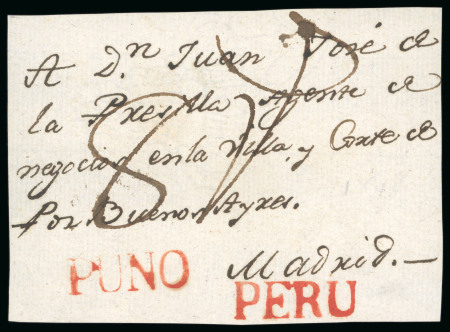 A D.n Juan José de
la Presilla Agente de
negocios en la Villa, y Corte de
Por Buenos Ayres.
Madrid.
PUNO
PERU
8